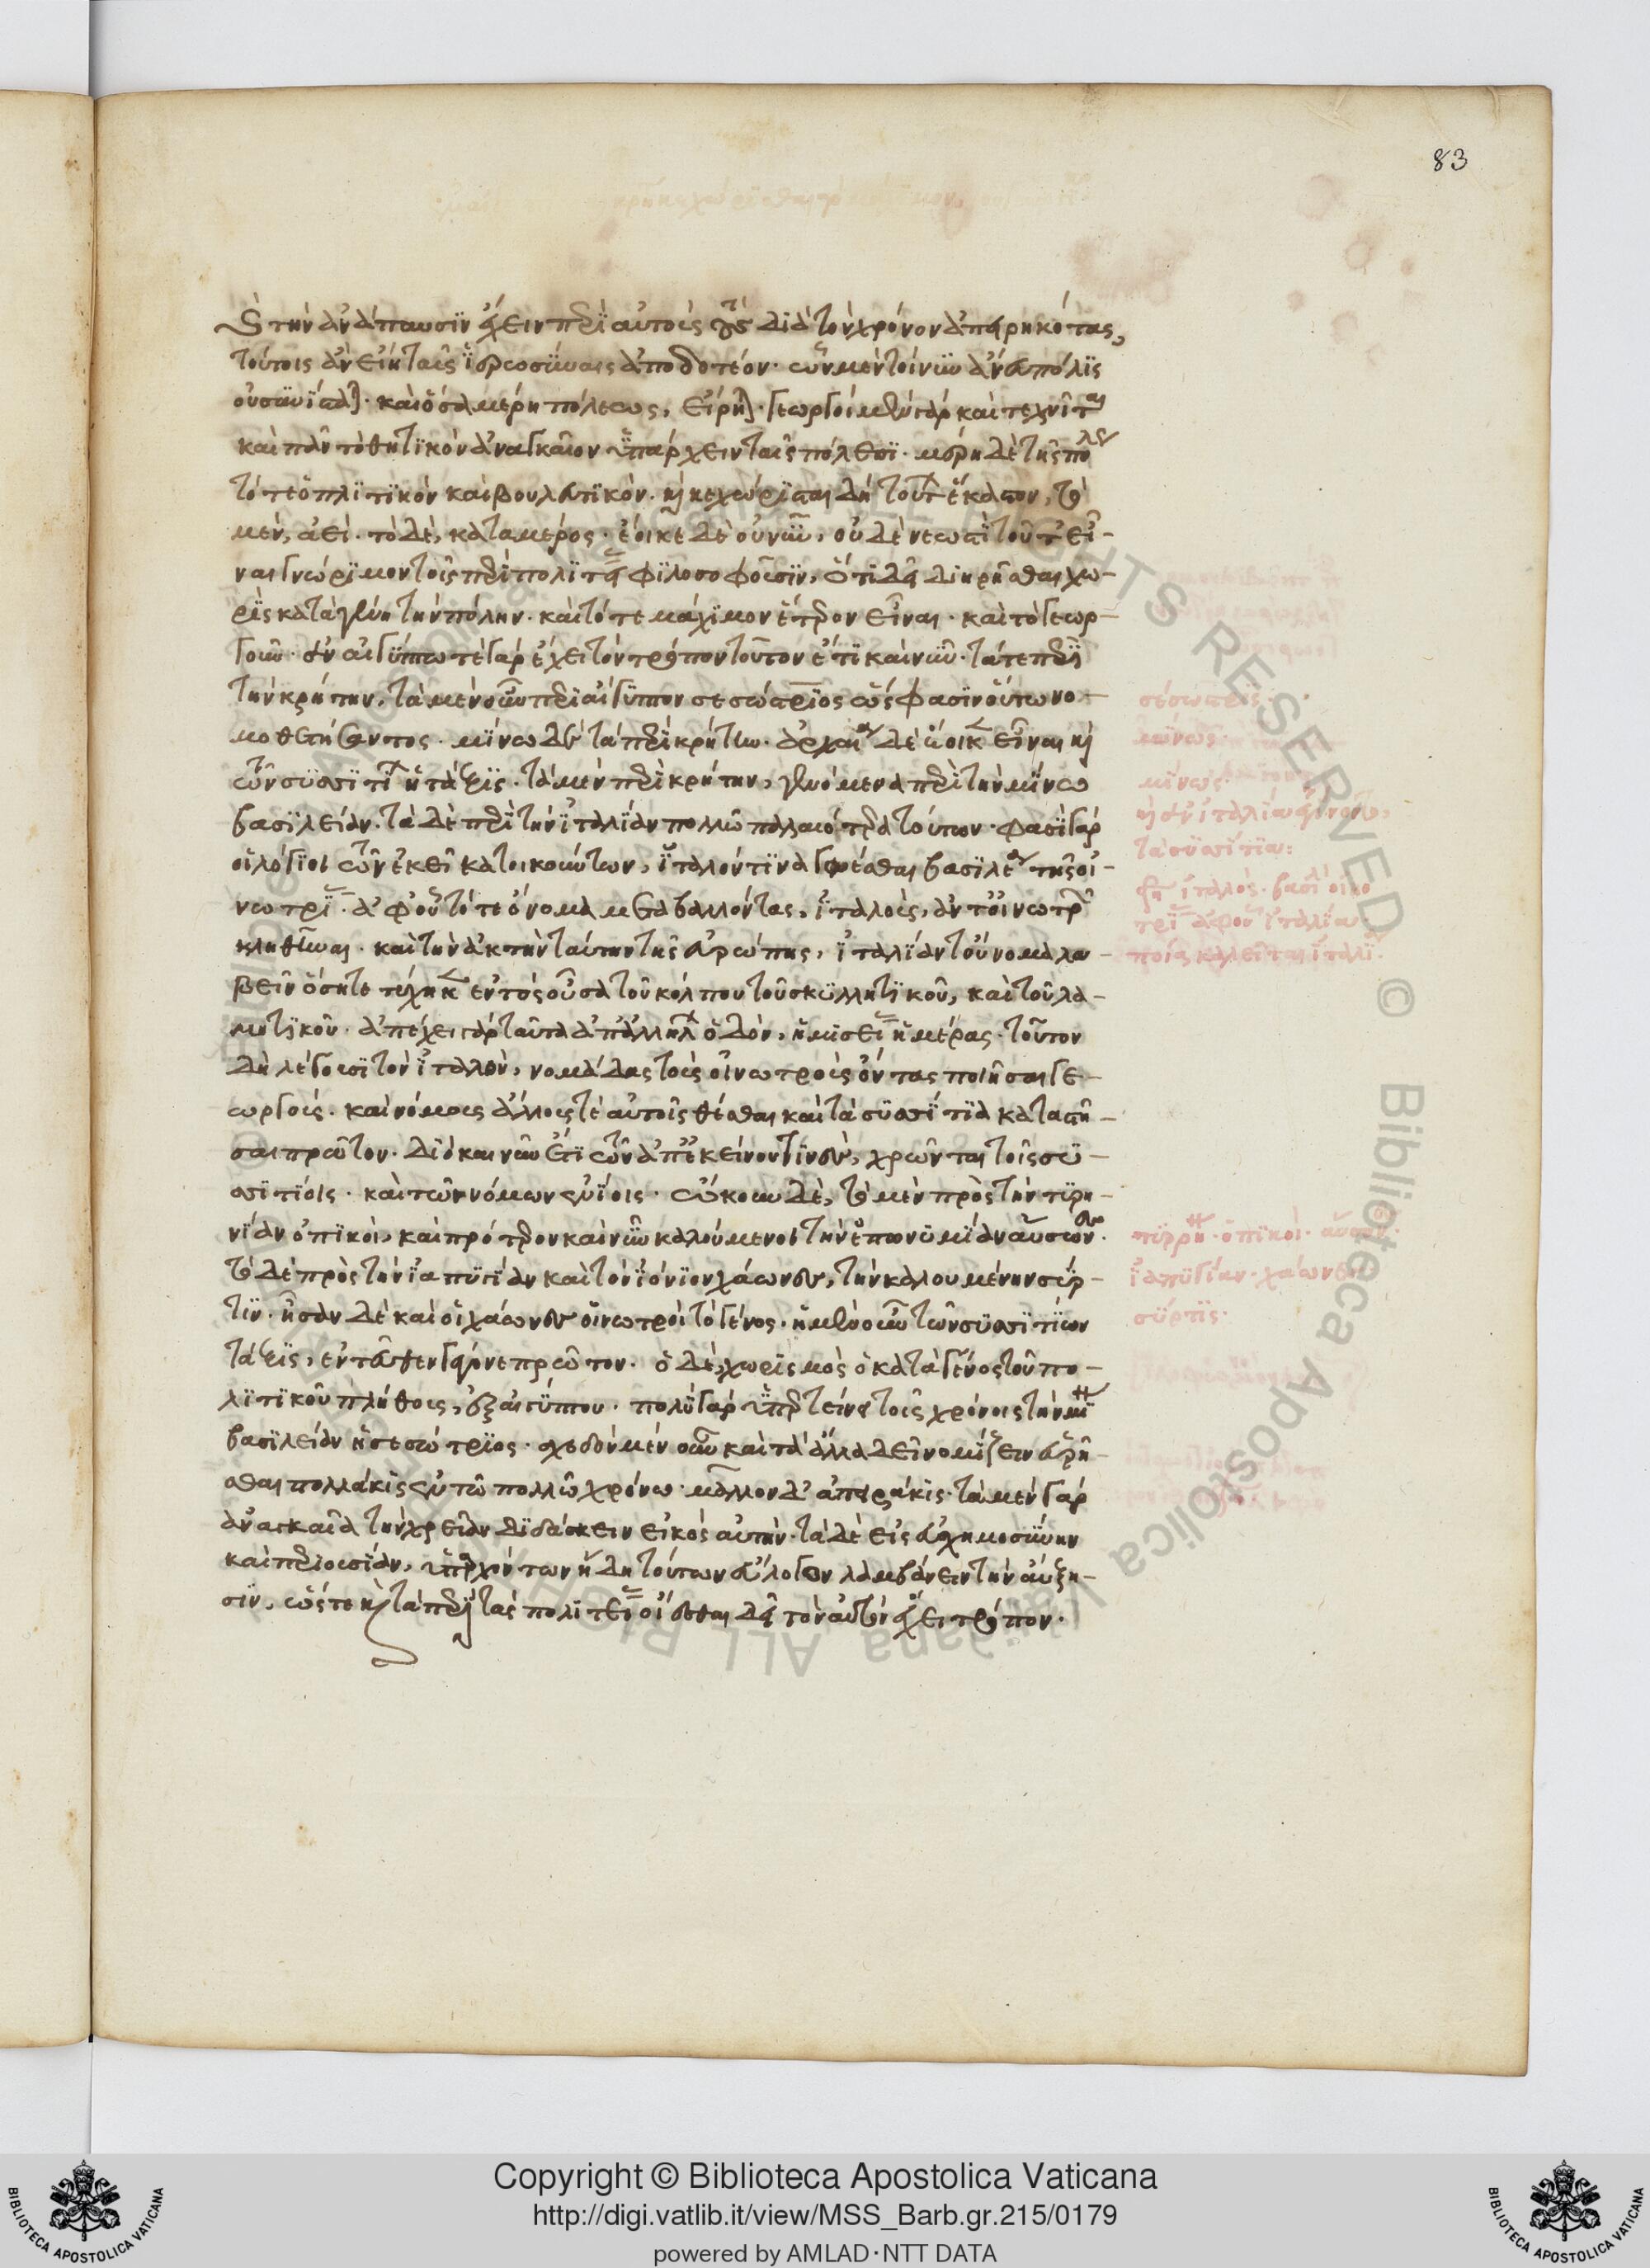 83
καὶ τὴν ἀνάπαυσιν ἔχειν περὶ αὐτοὺς τοὺς διὰ τὸν χρόνον ἀπειρηκότας,
τούτοις ἂν εἴη ταὶς ἱερωσύναις ἀποδοτέον. ὧν μὲν τοίνυν ἄνευ πόλις
οὐ συνίσταται. καὶ ὅσα μέρη πόλεως, εἴρηται. γεωργοὶ μὲν γὰρ καὶ τεχνῖται
καὶ πᾶν τὸ θητικὸν ἀναγκαῖον ὑπάρχειν ταῖς πόλεσι. μέρη δὲ τῆς πόλεως
τό τε ὁπλιτικὸν καὶ βουλευτικόν. καὶ κεχώρισται δὴ τούτων ἕκαστον, τὸ
μὲν, ἀεί. τὸ δὲ, κατα μέρος. ἔοικε δὲ οὐ νῦν, οὐδὲ νεωστὶ τοῦτ εἶ-
ναι γνώριμον τοῖς περὶ πολιτείας φιλοσοφοῦσιν, ὅτι δεῖ διηρῆσθαι χω-
ρὶς κατὰ γένη τὴν πόλιν. καὶ τό τε μάχιμον ἕτερον εἶναι. καὶ τὸ γεωρ-
γοῦν. ἐν αἰγύπτω τὲ γὰρ ἔχει τὸν τρόπον τοῦτον ἔτι καὶ νῦν. τά τε περὶ
τὴν κρήτην, τὰ μὲν οὖν περὶ αἴγυπτον σεσώστριος ὥς φασιν οὕτω νο-
μοθετήσαντος. μίνω δὲ τὰ περὶ κρήτην. ἀρχαία δὲ ἔοικεν εἶναι καὶ
τῶν συσσιτίων ἡ τάξις. τὰ μὲν περὶ κρήτην, γενόμενα περὶ τὴν μίνω
βασιλείαν. τὰ δὲ περὶ τὴν ἰταλίαν πολλῶ παλαιότερα τούτων. φασὶ γὰρ
οἱ λόγιοι τῶν ἐκεῖ κατοικούντων, ἰταλόν τινα γενέσθαι βασιλέα τῆς οἰ-
νωτρίας. ἀφ' οὗ τό τε ὄνομα μεταβαλλόντας, ἰταλοὺς, ἀντ' οἰνωτρῶν
κληθῆναι. καὶ τὴν ἀκτὴν ταύτην τῆς εὐρώπης, ἰταλίαν τοὔνομα λα-
βεῖν ὅση τετύχηκεν ἐντὸς οὖσα τοῦ κόλπου τοῦ σκυλλητικοῦ, καὶ τοῦ λα-
μητικοῦ. ἀπέχει γὰρ ταῦτα ἀπ' ἀλλήλων ὁδὸν, ἡμισείας ἡμέρας. τοῦτον
δὴ λέγουσι τὸν ἰταλὸν, νομάδας τοὺς οἰνωτροὺς ὄντας ποιῆσαι γε-
ωργούς. καὶ νόμους ἄλλους τὲ αὐτοῖς θέσθαι καὶ τὰ συσσίτια καταστῆ-
σαι πρῶτον. διὸ καὶ νῦν ἔτι τῶν ἀπ' ἐκείνου τινὲς, χρῶνται τοῖς συ-
σσιτίοις. καὶ τῶν νόμων ἐνίοις. ὤκουν δὲ, τὸ μὲν πρὸς τὴν τυρη-
νίαν ὀπικοὶ, καὶ πρότερον καὶ νῦν καλούμενοι τὴν ἐπωνυμίαν αὔσονες.
τὸ δὲ πρὸς τὴν ἰαπυγίαν καὶ τὸν ἰόνιον χάωνες, τὴν καλουμένην σύρ-
τιν. ἦσαν δὲ καὶ οἱ χάωνες οἰνωτροὶ τὸ γένος. ἡ μὲν οὖν τῶν συσσιτίων
τάξις, ἐντεῦθεν γέγονε πρῶτον. ὁ δὲ χωρισμὸς ὁ κατὰ γένος τοῦ πο-
λιτικοῦ πλήθους, ἐξ αἰγύπτου. πολὺ γὰρ ὑπερτείνει τοῖς χρόνοις τὴν μίνω
βασιλείαν ἡ σεσώτριος. σχεδὸν μὲν οὖν καὶ τὰ ἄλλα δεῖ νομίζειν εὑρῆ-
σθαι πολλάκις ἐν τῶ πολλῶ χρόνω. μᾶλλον δ' ἀπειράκις. τὰ μὲν γὰρ
ἀναγκαῖα τὴν χρείαν διδάσκειν εἰκὸς αὐτὴν. τὰ δὲ εἰς εὐσχημοσύνην
καὶ περιουσίαν, ὑπαρχόντων ἤδη τούτων εὔλογον λαμβάνειν τὴν αὔξη-
σιν, ὥστε καὶ τὰ περὶ τὰς πολιτείας οἴεσθαι δεῖ τὸν αὐτὸν ἔχει τρόπον.
σέσωστρις.
μίνως.
μίνως.
τὰ συσσίτια:
ἰταλὸς. βασι οἰνο
τρι ἀφ' οὗ ἰταλία.
ποία καλεῖται ἰταλί
τυρρη. ὀπικοὶ. αὔσονες.
ἰαπυγίαν. χάωνες
σύρτις.
Copyright © Biblioteca Apostolica Vaticana
http://digi.vatlib.it/view/MSS_Barb.gr.215/0179
powered by AMLAD·NTT DATA
BIBLIOTECA APOSTOLICA VATICANA
BIBLIOTECA APOSTOLICA VATICANA